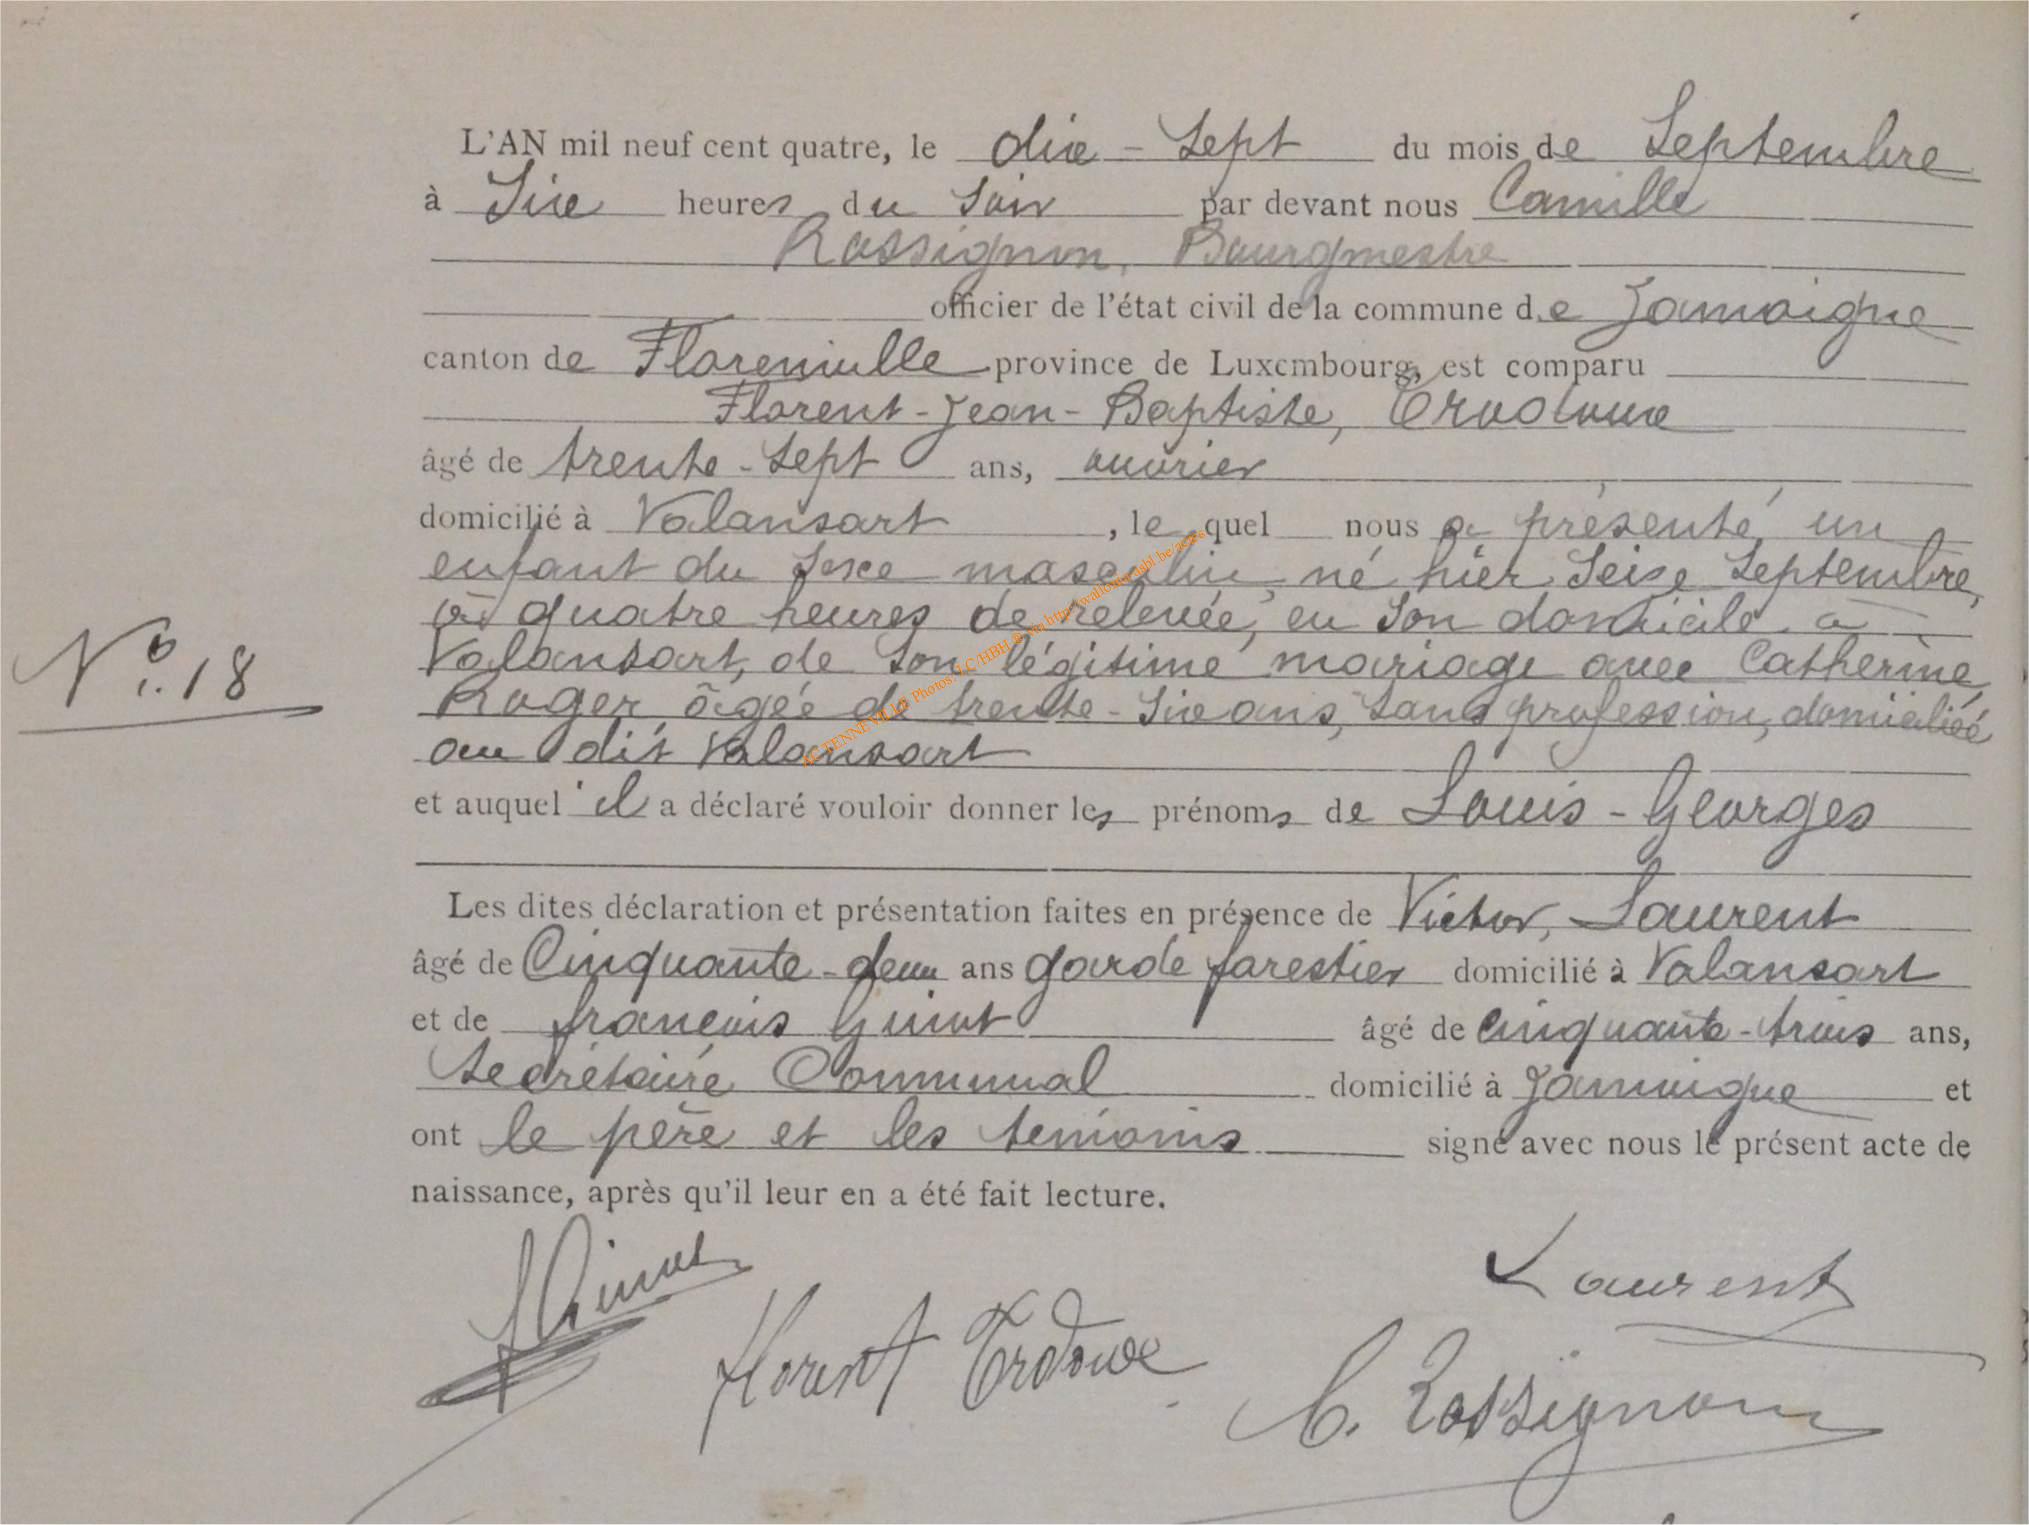 L'AN mil neuf cent quatre, le dix-sept du mois de Septembre
à Six heures du Soir par devant nous Camille
Rossignon, Bourgmestre
officier de l'état civil de la commune de Jamoigne
canton de Florenville province de Luxembourg, est comparu
Florent-Jean-Baptiste,
âgé de trente-sept ans, ouvrier
domicilié à Valansart, lequel nous a présenté un
enfant du Sexe masculin, né hier Seize Septembre,
à quatre heures de relevée, en Son domicile à
Valansart, de Son légitime mariage avec Catherine
Roger, âgée de trente-Six ans, Sans profession, domiciliée
au dit Valansart
N° 18
et auquel il a déclaré vouloir donner les prénoms de Louis-Georges
Les dites déclaration et présentation faites en présence de Victor, Laurent
âgé de Cinquante-deux ans garde forestier domicilié à Valansart
et de françois âgé de Cinquante-trois ans,
Secrétaire Communal domicilié à Jamoigne et
ont le père et les temoins signé avec nous le présent acte de
naissance, après qu'il leur en a été fait lecture.
Laurent
Florent
C. Rossignon